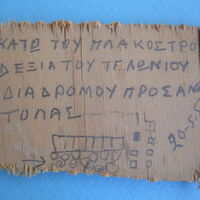 ΚΑΤΩ ΤΟΥ ΠΛΑΚΟΣΤΡΟ
ΔΕΞΙΑ ΤΟΥ ΤΕΛΩΝΙΟΥ
ΔΙΑΔΡΟΜΟΥ ΠΡΟΣ ΑΝΑ
ΤΟΛΑΣ